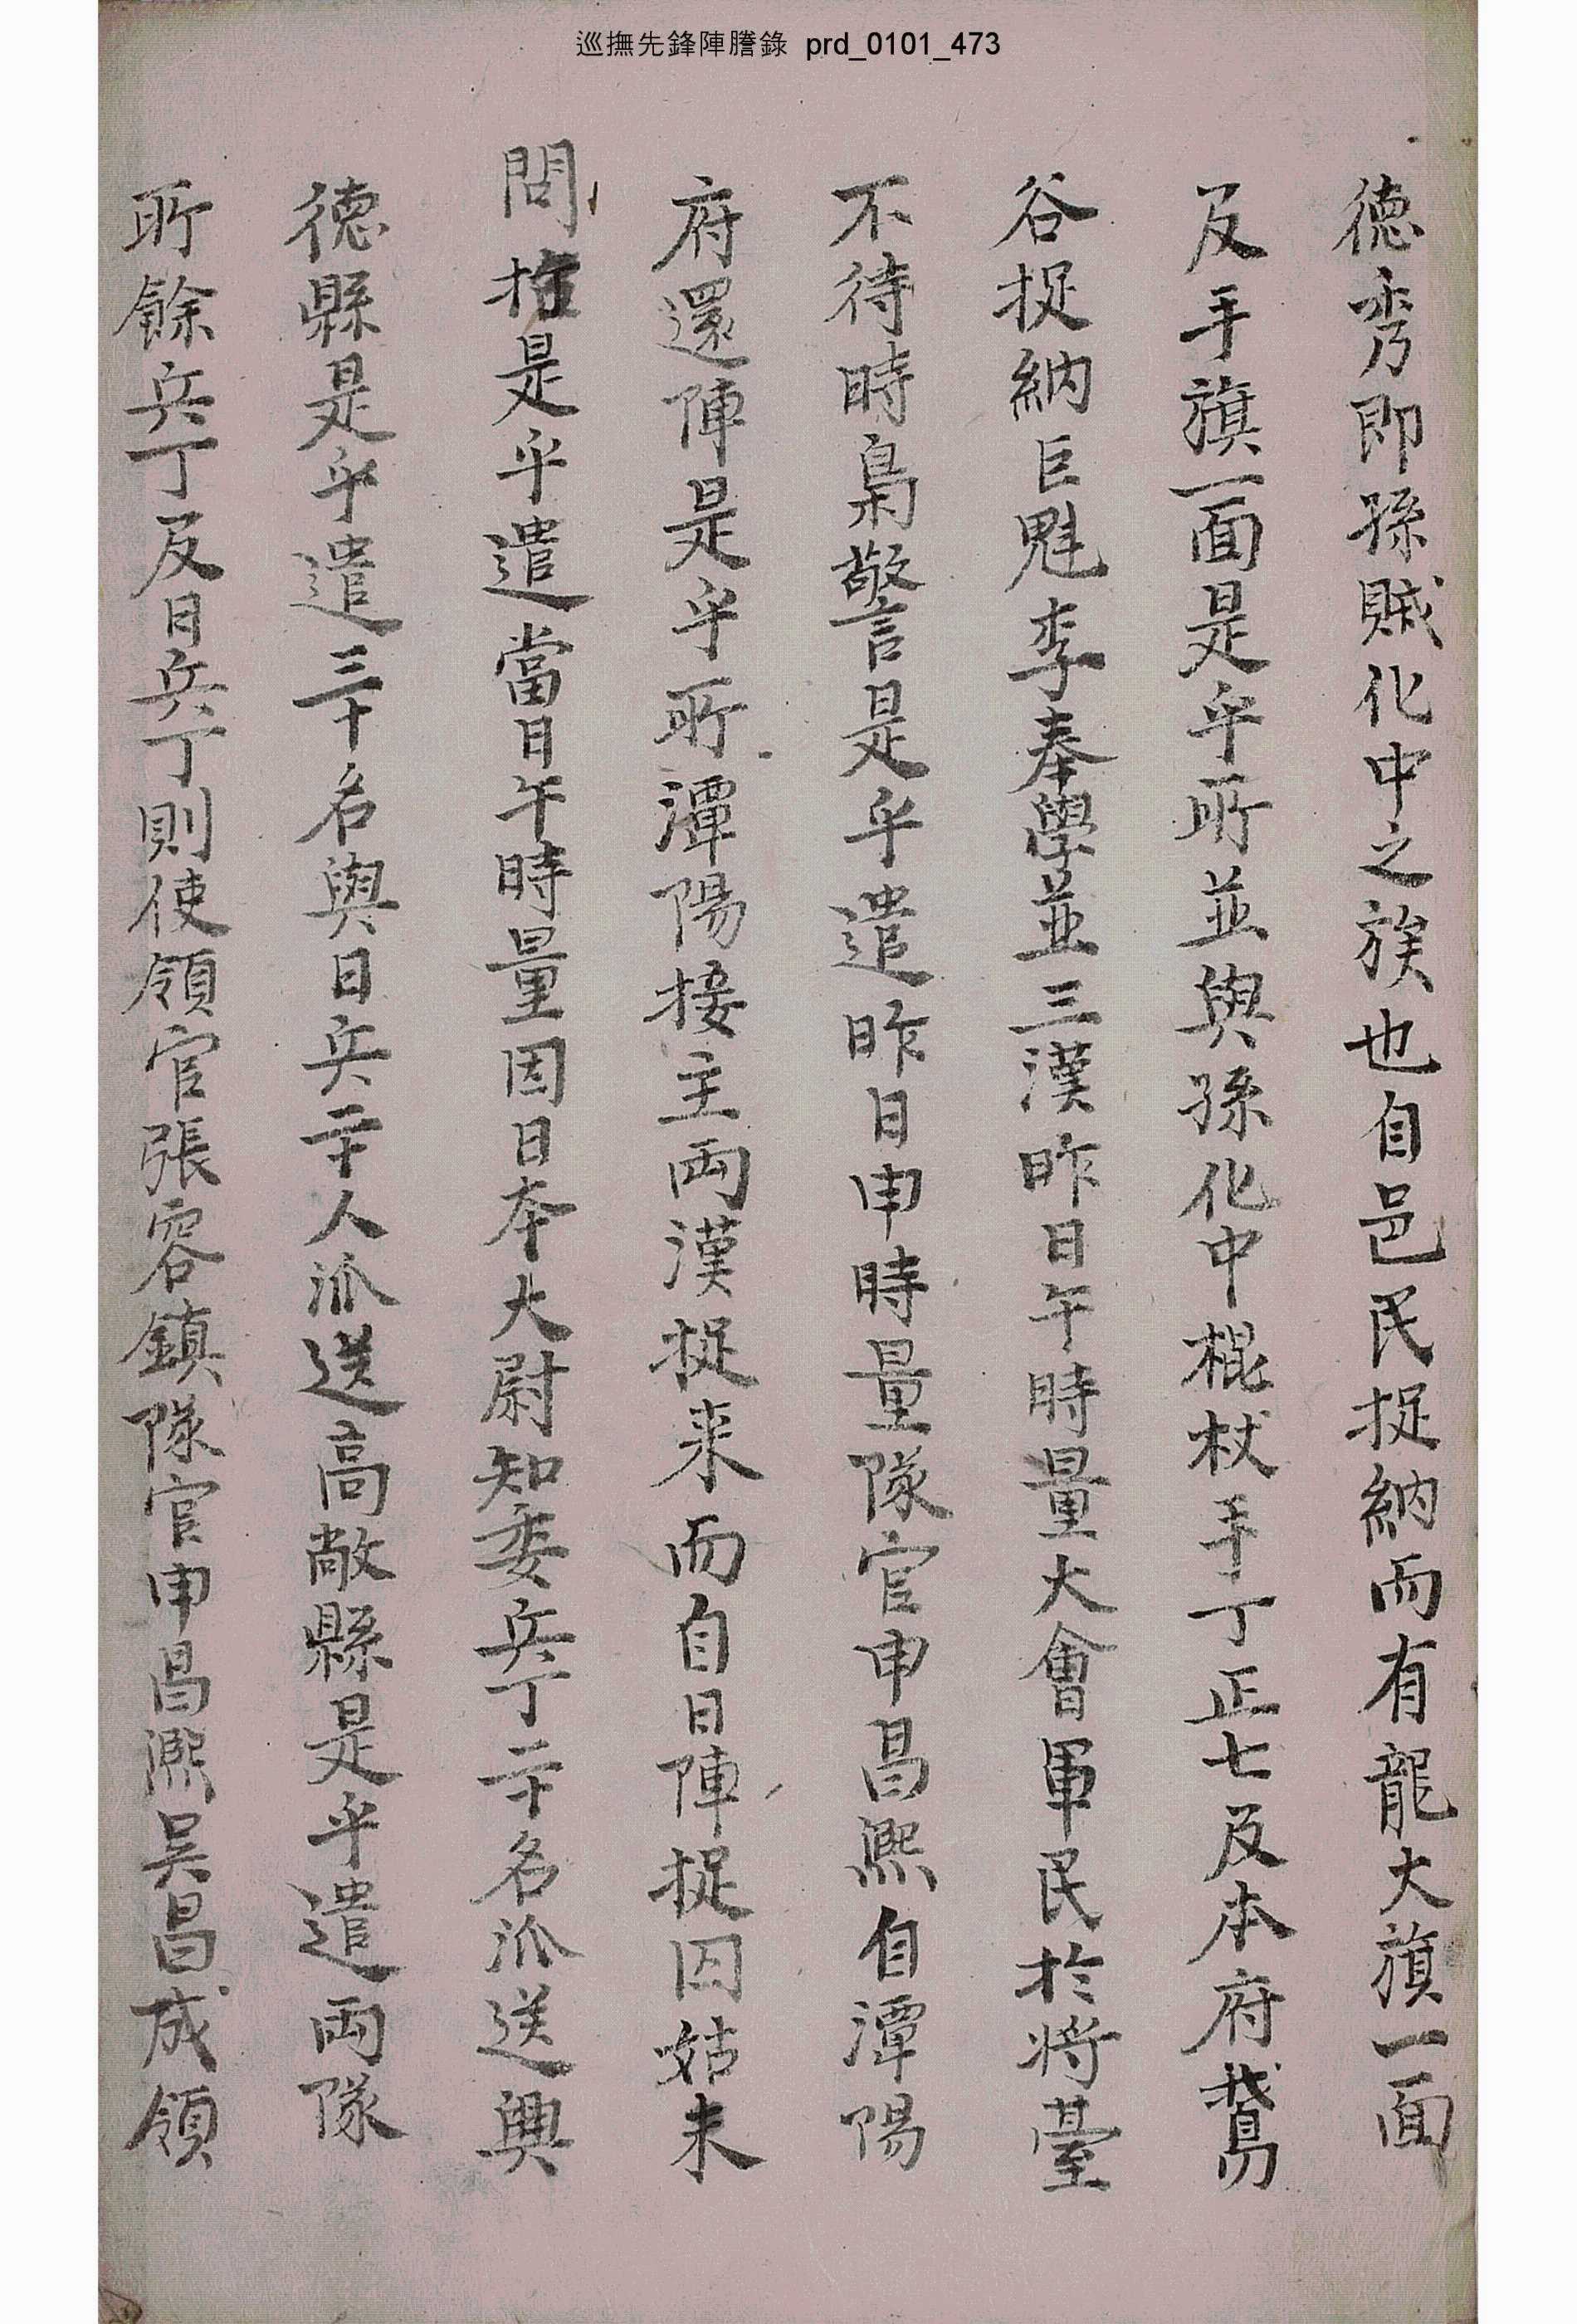 巡撫先鋒陣謄錄 prd_0101_473
德秀即孫賊化中之族也自邑民捉納而有龍大旗一面
及手旗一面是乎所並與孫化中棍杖手丁正七及本府鵞
谷捉納巨魁李奉學並三漢昨日午時量大會軍民於將臺
不待時梟警是乎遣昨日申時量隊官申昌熙自潭陽
府還陣是乎所潭陽接主両漢捉来而自日陣捉囚姑未
問招是乎遣當日午時量因日本大尉知委兵丁二十名派送興
德縣是乎遣三十名與日兵二十人派送高敞縣是乎遣両隊
所餘兵丁及日兵丁則使領官張容鎮隊官申昌熙吳昌成領